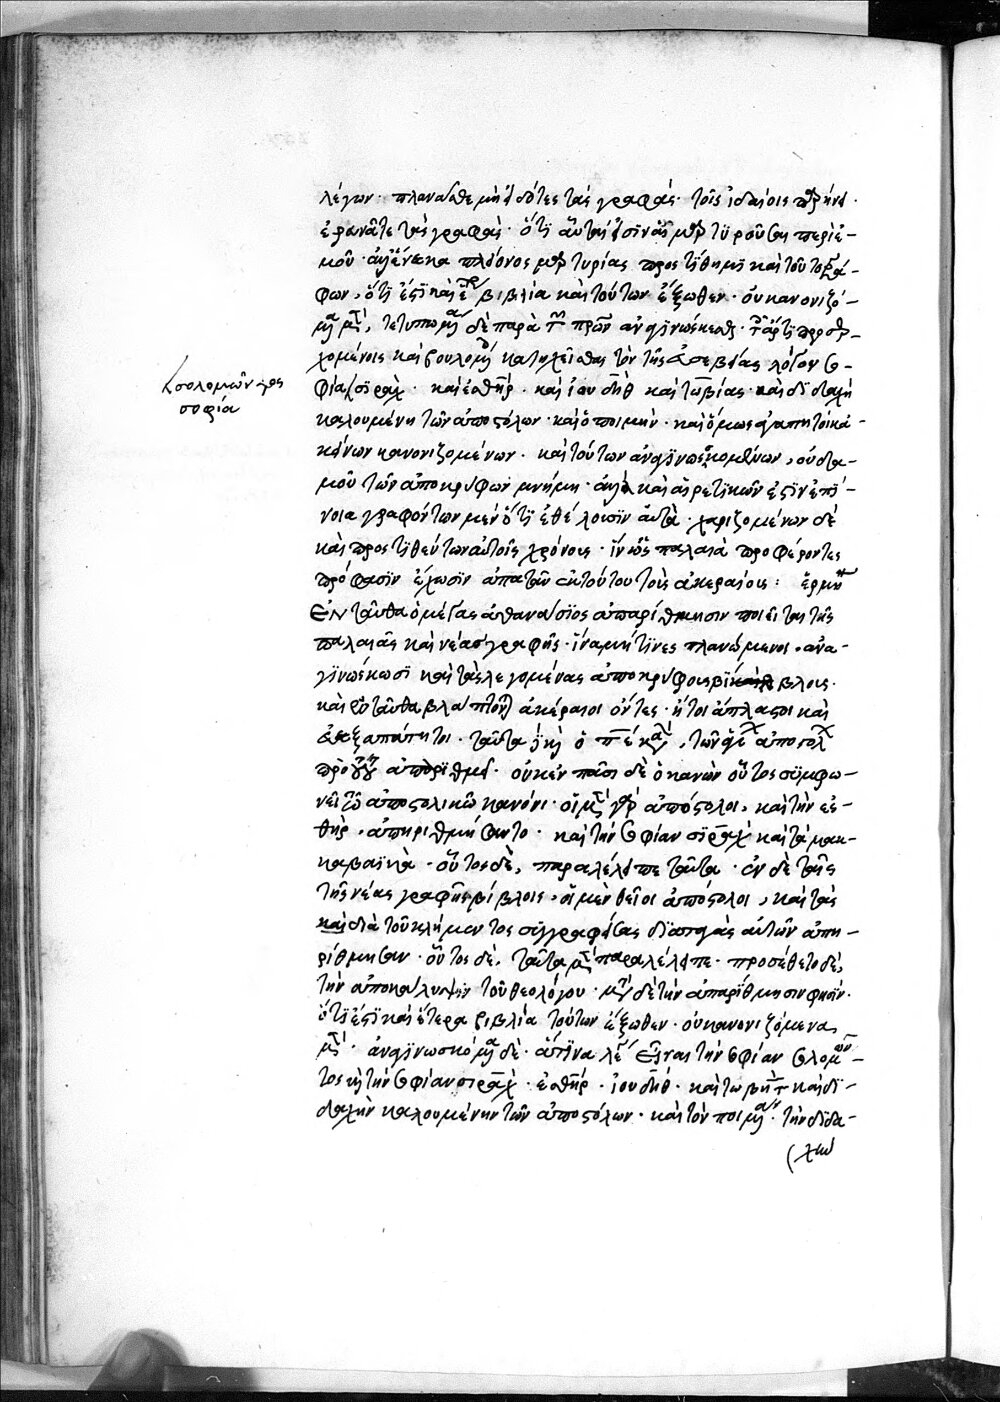 λέγων· πλανᾶσθε μὴ εἰδότες τὰς γραφάς· τοῖς ἰουδαίοις παρήνει·
ἐρευνᾶτε τὰς γραφάς· ὅτι αὗταί εἰσιν αἱ μαρτυροῦσαι περὶ ἐ-
μοῦ· ἀλλ' ἕνεκα πλείονος μαρτυρίας προστίθημι καὶ τοῦτο γρά-
φων, ὅτι ἐστὶ καὶ ἕτερα βιβλία καὶ τούτων ἔξωθεν· οὐ κανονιζό-
μενα μὲν, τετυπωμένα δὲ παρὰ τῶν πατέρων ἀναγινώσκεσθαι τοῖς ἄρτι προσερ-
χομένοις καὶ βουλομένοις κατηχεῖσθαι τὸν τῆς εὐσεβείας λόγον σο-
φία σιρὰχ· καὶ ἐσθὴρ· καὶ ἰουδὴθ καὶ τωβίας· καὶ διδαχὴ
καλουμένη τῶν ἀποστόλων· καὶ ὁ ποιμήν· καὶ ὅμως ἀγαπητοὶ κἀ-
κείνων κανονιζομένων· καὶ τούτων ἀναγινωσκομένων, οὐδα-
μοῦ τῶν ἀποκρύφων μνήμη· ἀλλὰ καὶ αἱρετικῶν ἐστὶν ἐπί-
νοια γραφόντων μὲν ὅτε ἐθέλουσιν αὐτὰ· χαριζομένων δὲ
καὶ προστιθέντων αὐτοῖς χρόνους· ἵν' ὡς παλαιὰ προφέροντες
πρόφασιν ἔχωσιν ἀπατᾶν ἐκ τούτου τοὺς ἀκεραίους: ἑρμη
ἐνταῦθα ὁ μέγας ἀθανάσιος ἀπαρίθμησιν ποιεῖται τῆς
παλαιᾶς καὶ νέας γραφῆς· ἵνα μή τινες πλανώμενοι· ἀνα-
γινώσκωσι καὶ τὰς λεγομένας ἀποκρύφους βίβλους·
καὶ ἐνταῦθα βλάπτονται ἀκέραιοι ὄντες· ἤτοι ἄπλαστοι καὶ
εὐεξαπάτητοι· ταῦτα καὶ ὁ πε κα, τῶν ἁγίων ἀποστόλ
ἀπαριθμεῖ· οὐκ ἐν πᾶσι δὲ ὁ κανὼν οὗτος συμφω-
νεῖ τῷ ἀποστολικῷ κανόνι· οἱ μὲν γὰρ ἀπόστολοι, καὶ τὴν ἐσ-
θὴρ, ἀπηριθμήσαντο· καὶ τὴν σοφίαν σιρὰχ καὶ τὰ μακ-
καβαϊκὰ· οὗτος δὲ, παραλέλοιπε ταῦτα· ἐν δὲ ταῖς
τῆς νέας γραφῆς βίβλοις, οἱ μὲν θεῖοι ἀπόστολοι, καὶ τὰς
καὶ διὰ τοῦ κλήμεντος συγγραφείσας διαταγὰς αὐτῶν ἀπη-
ρίθμησαν· οὗτος δὲ, ταῦτα μὲν παραλέλοιπε· προσέθετο δὲ,
τὴν ἀποκάλυψιν τοῦ θεολόγου· μετὰ δὲ τὴν ἀπαρίθμησιν φησὶν·
ὅτι ἐστὶ καὶ ἕτερα βιβλία τούτων ἔξωθεν· οὐ κανονιζόμενα
μὲν· ἀναγινωσκόμενα δὲ· ἅτινα λέγ εἶναι τὴν σοφίαν σολομῶν-
τος καὶ τὴν σοφίαν σιρὰχ· ἐσθὴρ· ἰουδὴθ· καὶ τωβὴτ καὶ δι-
δαχὴν καλουμένην τῶν ἀποστόλων· καὶ τὸν ποιμένα· τὴν διδα-
χὴν
σολομῶντος
σοφία